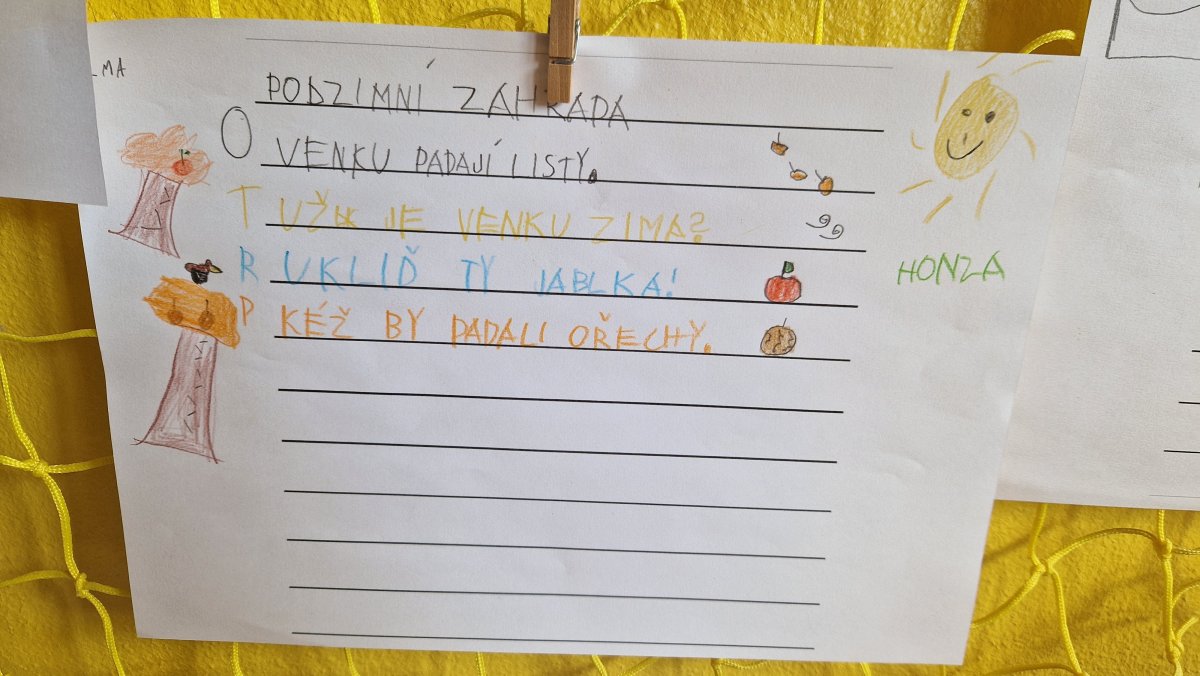 MA
PODZIMNÍ ZAHRADA
O VENKU PADAJÍ LISTY.
T UŽ JE VENKU ZIMA?
R UKLIĎ TY JABLKA!
HONZA
P KÉŽ BY PADALI OŘECHY.